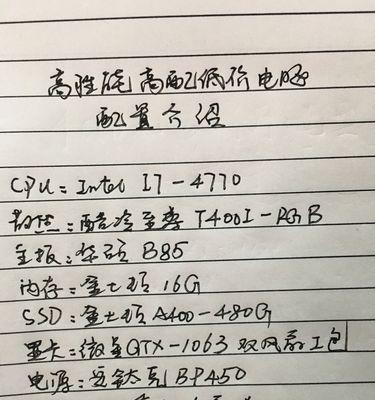 高性能高配低价电脑
配置介绍
CPU：Intel I7-4770
散热：酷冷至尊 T400I-RGB
主板：华硕 B85
内存：金士顿 16G
SSD：金士顿 A400-480G
显卡：微星GTX-1063 双风扇工包
电源：安钛克BP450